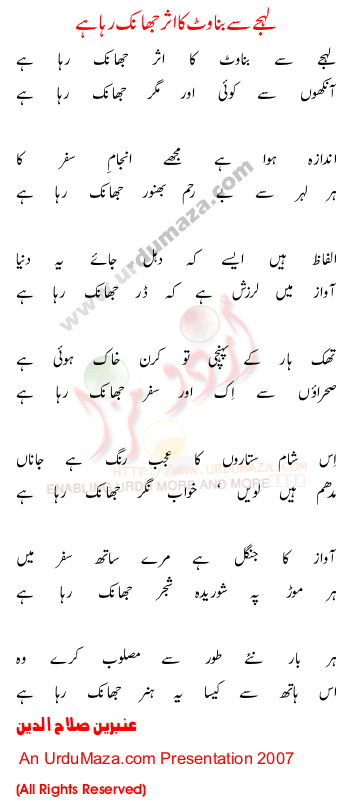 لہجے سے بناوٹ کا اثر جھانک رہا ہے
لہجے سے بناوٹ کا اثر جھانک رہا ہے
آنکھوں سے کوئی اور مگر جھانک رہا ہے
اندازہ ہوا ہے مجھے انجامِ سفر کا
ہر لہر سے بے رحم بھنور جھانک رہا ہے
الفاظ ہیں ایسے کہ دہل جائے یہ دنیا
آواز میں لرزش ہے کہ ڈر جھانک رہا ہے
تھک ہار کے پہنچی تو کرن خاک ہوئی ہے
صحراؤں سے اِک اور سفر جھانک رہا ہے
اِس شام ستاروں کا عجب رنگ ہے جاناں
مدھم ہیں لویں ' خواب نگر جھانک رہا ہے
آواز کا جنگل ہے مرے ساتھ سفر میں
ہر موڑ پہ شوریدہ شجر جھانک رہا ہے
ہر بار نئے طور سے مصلوب کرے وہ
اس ہاتھ سے کیسا یہ ہنر جھانک رہا ہے
عنبرین صلاح الدین
An UrduMaza.com Presentation 2007
(All Rights Reserved)
www.urdumaza.com
اُردو مزا
HTTP://WWW.URDUMAZA.COM
ENABLING URDU MORE AND MORE